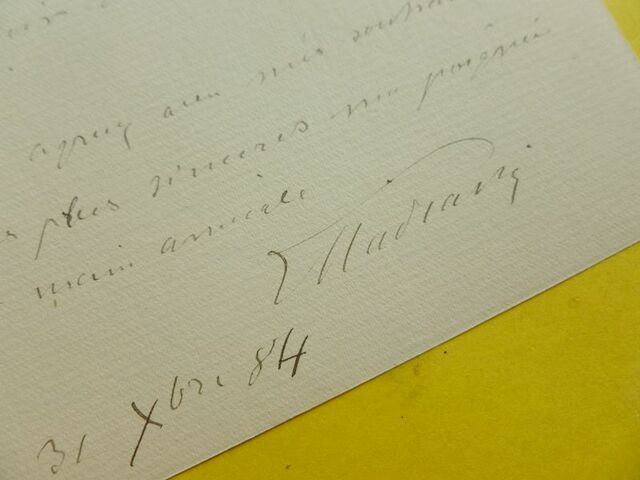 agréez avec mes souhaits
plus sincères ma poignée
main amicale
31 Xbre 84